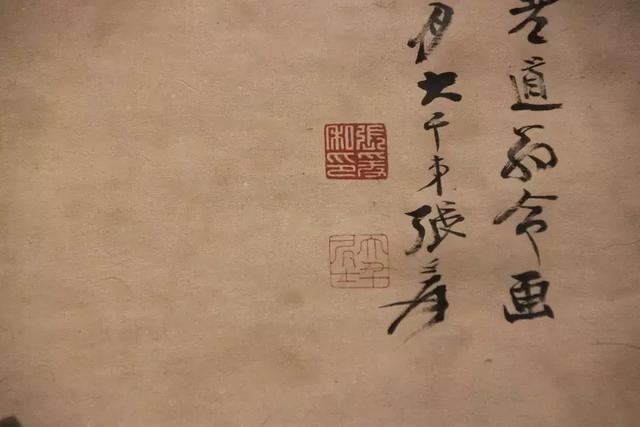 道 令画
月大千弟張爰
張爰
私印
大千
居士